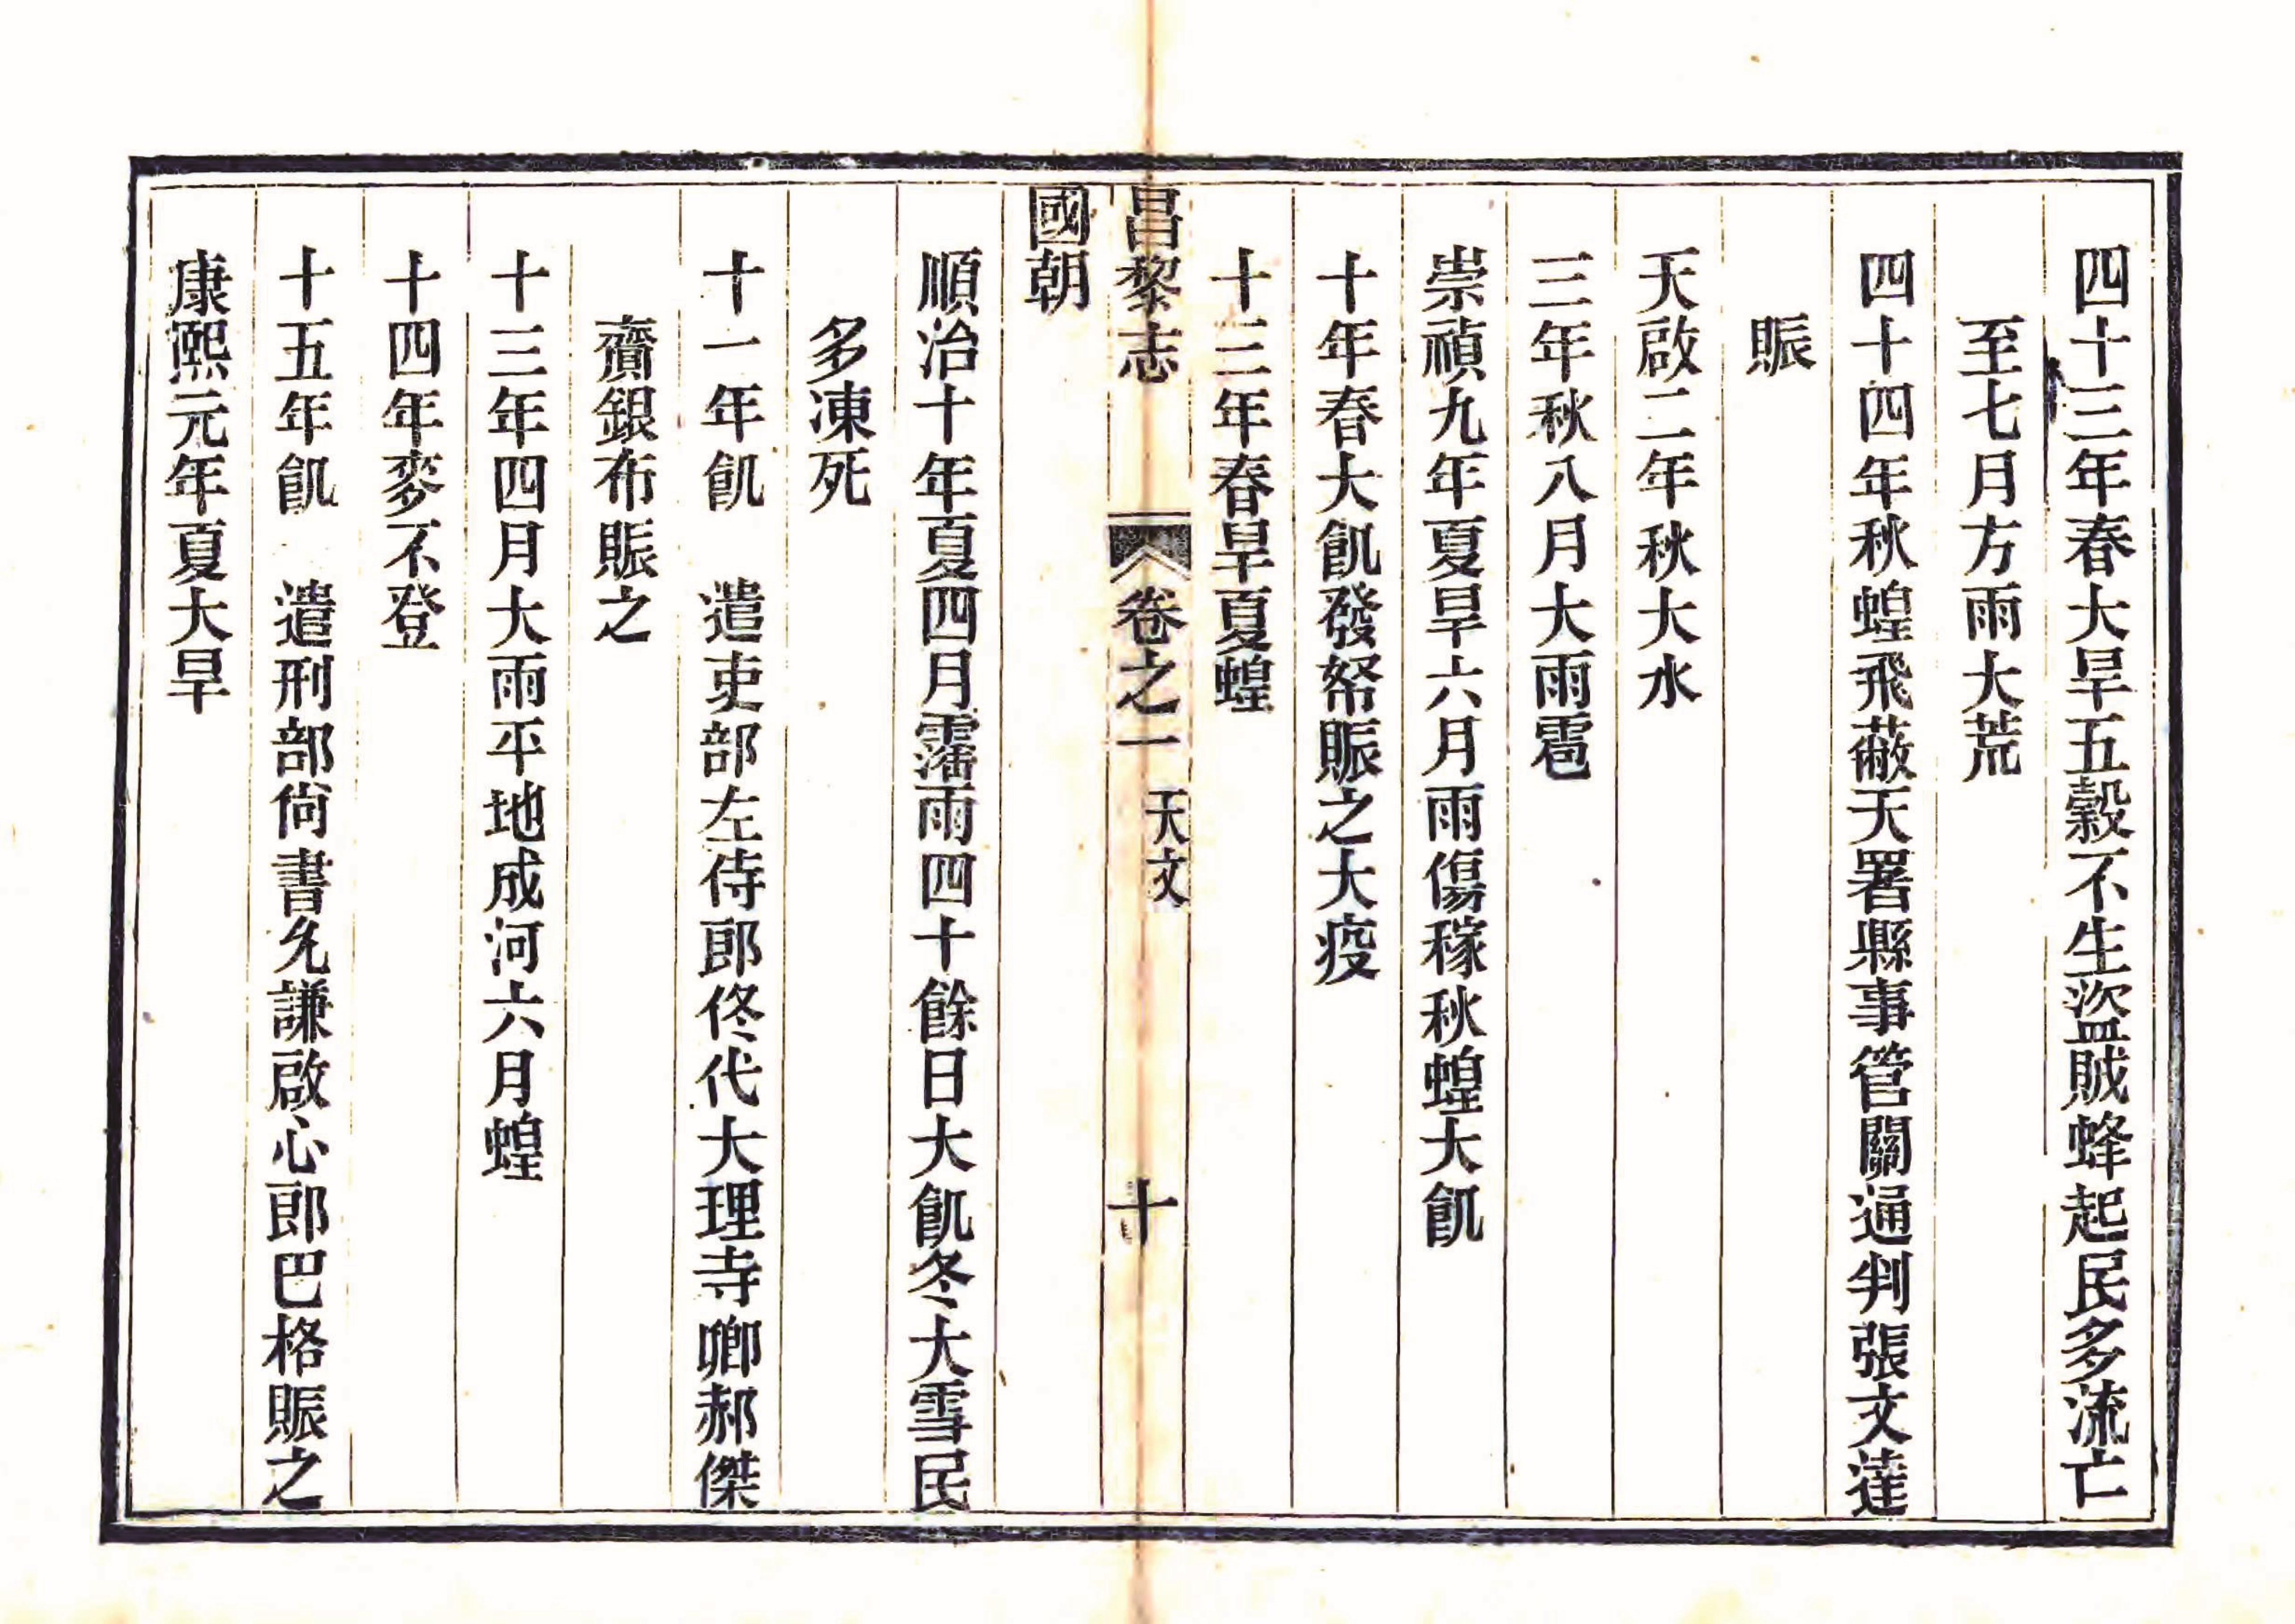 四十三年春大旱五穀不生盜賊蜂起民多流亡
至七月方雨大荒
四十四年秋蝗飛蔽天署縣事管關通判張文達
賑
天啟二年秋大水
三年秋八月大雨雹
崇禎九年夏旱六月雨傷稼秋蝗大飢
十年春大飢發帑賑之大疫
十三年春旱夏蝗
昌黎志 卷之一 天文 十
國朝
順治十年夏四月霪雨四十餘日大飢冬大雪民
多凍死
十一年飢 遣吏部左侍郎佟代大理寺卿郝傑
齎銀布賑之
十三年四月大雨平地成河六月蝗
十四年麥不登
十五年飢 遣刑部尙書允謙啟心郎巴格賑之
康熙元年夏大旱